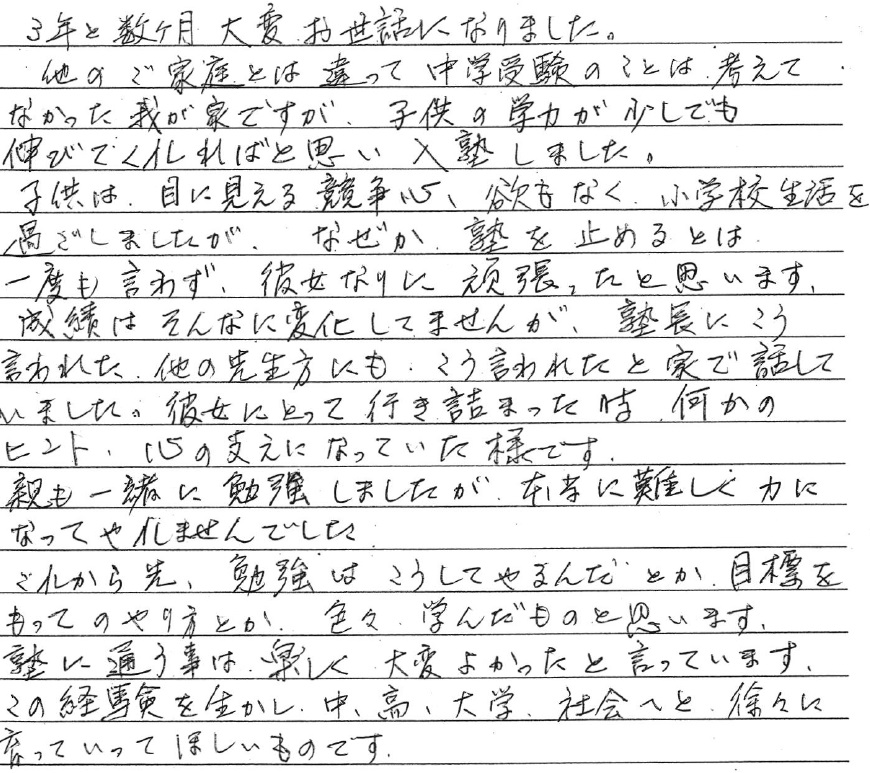 3年と数ヶ月 大変お世話になりました。
他のご家庭とは違って中学受験のことは、考えて
なかった我が家ですが、子供の学力が少しでも
伸びてくれればと思い入塾しました。
子供は、目に見える競争心、欲もなく、小学校生活を
過ごしましたが、なぜか、塾を止めるとは
一度も言わず、彼女なりに頑張ったと思います。
成績はそんなに変化してませんが、塾長にこう
言われた、他の先生方にも、こう言われたと家で話して
いました。彼女にとって行き詰まった時、何かの
ヒント、心の支えになっていた様です。
親も一緒に勉強しましたが、本当に難しく力に
なってやれませんでした
これから先、勉強はこうしてやるんだとか、目標を
もってのやり方とか、色々、学んだものと思います。
塾に通う事は、楽しく大変よかったと言っています。
この経験を生かし、中、高、大学、社会へと、徐々に
育っていってほしいものです。